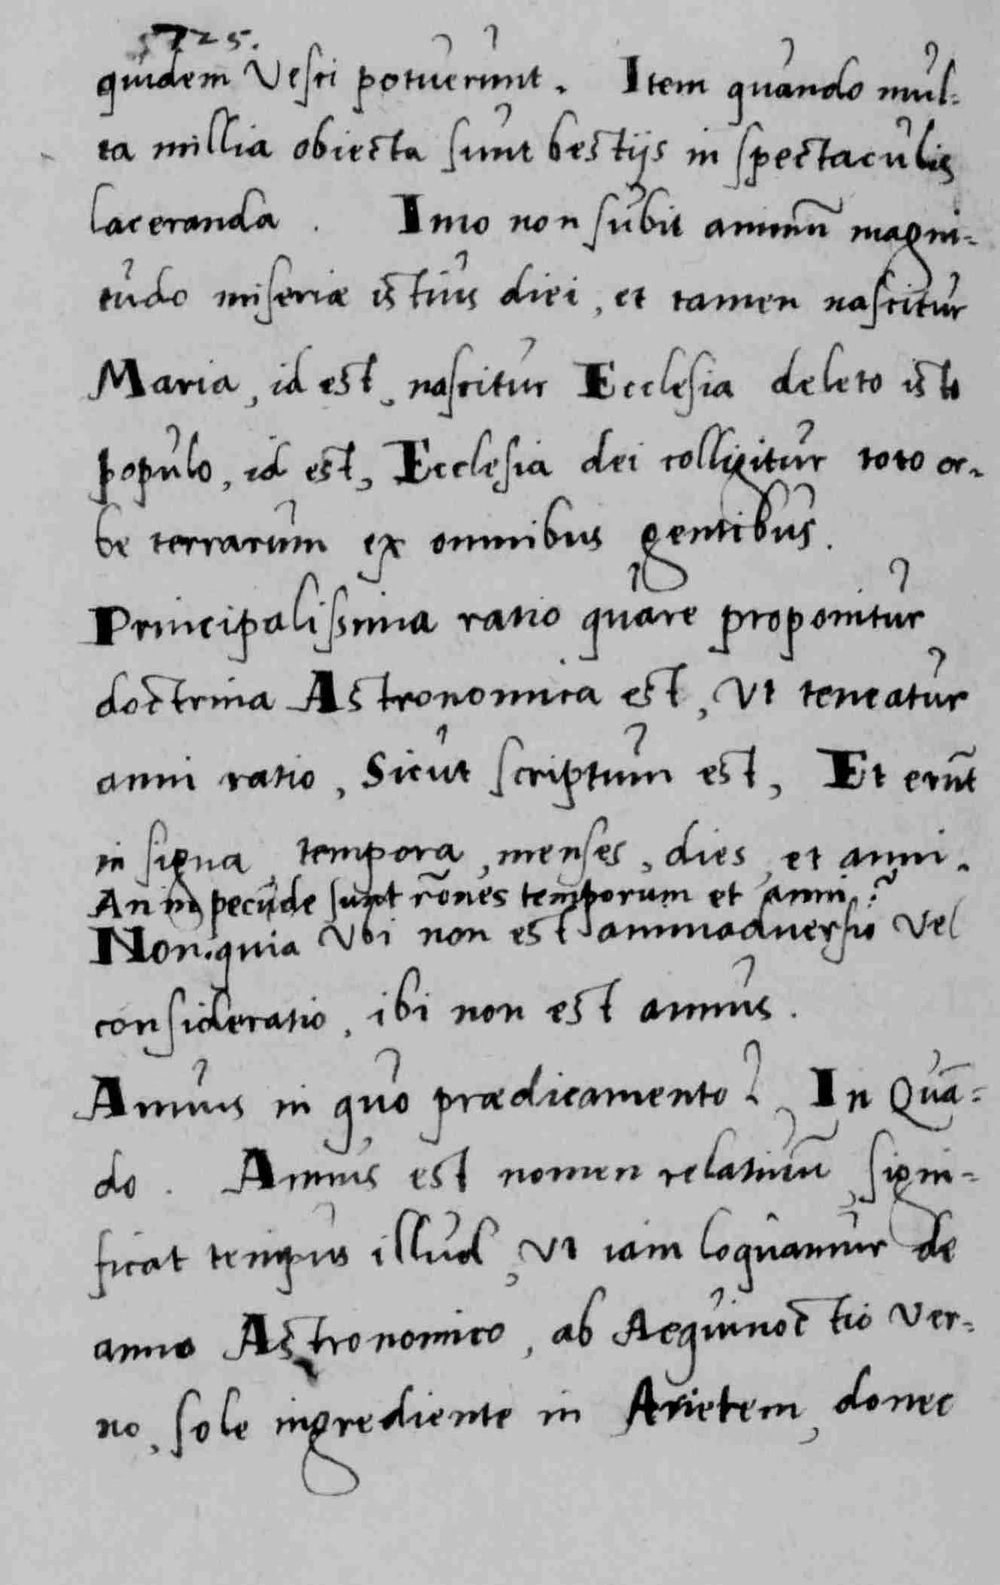 5725.
quidem Vesci potuerunt. Item quando mul-
ta millia obiecta sunt bestijs in spectaculis
laceranda. Imo non subit animū magni-
tudo miseriæ istius diei, et tamen nascitur
Maria, id est, nascitur Ecclesia deleto isto
populo, id est, Ecclesia dei colligitur toto or-
be terrarum ex omnibus gentibus.
Principalissima ratio quare proponitur
doctrina Astronomica est, Vt teneatur
anni ratio, Sicut scriptum est, Et erūt
in signa, tempora, menses, dies, et anni.
An in pecude sunt rōnes temporum et anni?
Non. quia Vbi non est animaduersio Vel
consideratio, ibi non est annus.
Annus in quo prædicamento? In Quā-
do. Annus est nomen relatiuū, signi-
ficat tempus illud, Vt iam loquamur de
anno Astronomico, ab Aequinoctio Ver-
no, sole ingrediente in Arietem, donec